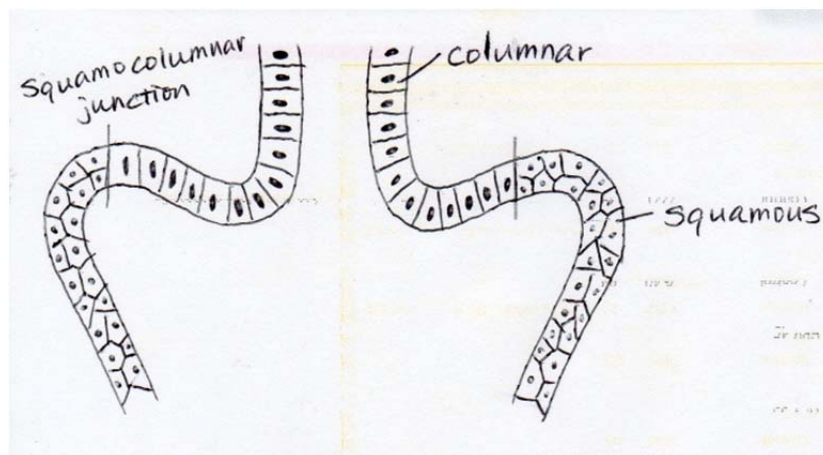 squamocolumnar
junction
columnar
squamous